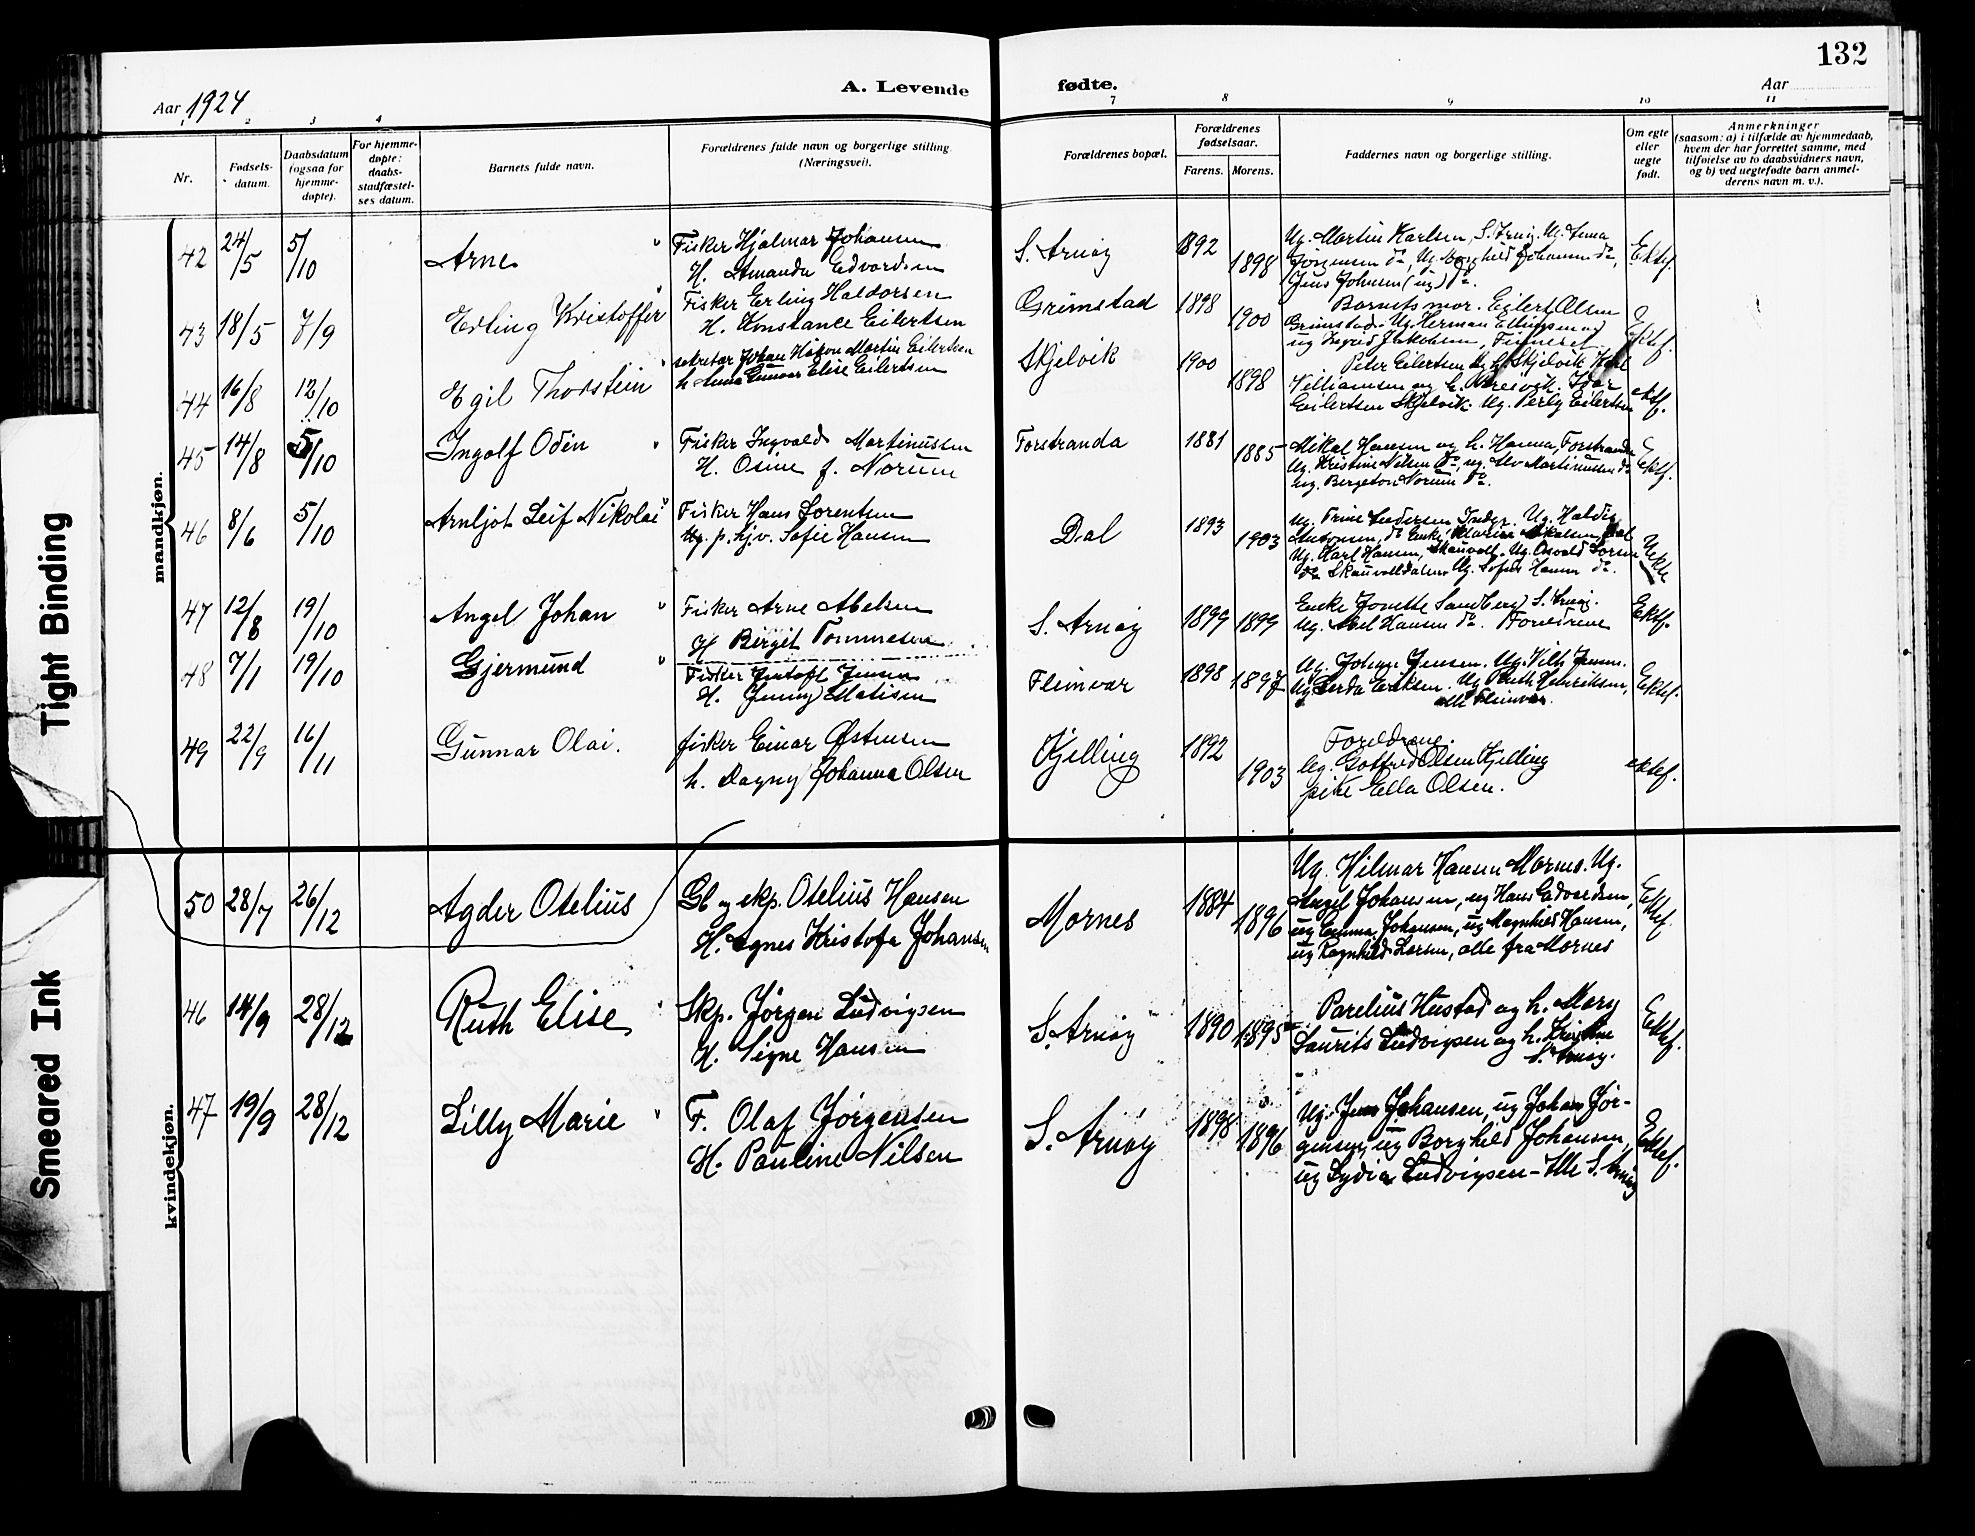 132
Aar 1924
A. Levende fødte.
Aar
1 2 3 4 7 8 9 10 11
Nr.
Fødsels-
datum.
Daabsdatum
(ogsaa for
hjemme-
døpte).
For hjemme-
døpte:
daabs-
stadfæstel-
ses datum.
Barnets fulde navn.
Forældrenes fulde navn og borgerlige stilling.
(Næringsvei).
Forældrenes bopæl.
Forældrenes
fødselsaar.
Farens. Morens.
Faddernes navn og borgerlige stilling.
Om egte
eller
uegte
født.
Anmerkninger
(saasom: a) i tilfælde av hjemmedaab,
hvem der har forrettet samme, med
tilføielse av to daabsvidners navn,
og b) ved uegtefødte barn anmel-
derens navn m. v.).
mandkjøn.
42 24/5 5/10 Arne
Fisker Hjalmar Johansen
H. Amanda Edvardsen
S. Arnøy 1892 1898
Ug. Martin Karlsen, S. Arnøy. Ug. Anna
Jørgensen do, Ug. Borghild Johansen do,
Jens Johansen (ug) do.
Ektef.
43 18/5 7/9 Erling Kristoffer
Fisker Erling Haldorsen
H. Konstance Eilertsen
Grimstad 1898 1900
Barnets mor. Eilert Olsen
Grimstad. Ug. Herman Ellingsen og
ug Ingrid Jakobsen,
Ektef.
44 16/8 12/10 Egil Thorstein
sekretær Johan Håkon Martin Eilertsen
h. Anna Gunvor Elise Eilertsen
Skjelvik 1900 1898
Peter Eilertsen og h. Skjelvik. Karl
Villiamsen og h. Ivar
Eilertsen Skjelvik. Ug. Perly Eilertsen
ektef.
45 14/8 5/10 Ingolf Odin
Fisker Ingvald Martinussen
H. Osine f. Norum
Forstranda 1881 1885
Mikal Hansen og h. Hanna, Forstranda
Ug. Kristine Nilsen do, ug. Alv Martinussen do
ug. Bergeton Norum do.
Ektef.
46 8/6 5/10 Arnljot Leif Nikolai
Fisker Hans Lorentsen
Ug. p. hj. v. Sofie Hansen
Dal 1893 1903
Ug. Trine Andersen Inder. Ug. Haldis
Antonsen, do Enke Marie Mikalsen, Dal
Ug. Karl Hansen, Skauvoll. Ug. Osvald Lorsen
do Skauvolldalen Ug. Sofus Hansen do.
Uekte
47 12/8 19/10 Angel Johan
Fisker Arne Abelsen
H Birgit Tommesen
S. Arnøy 1899 1899
Enke Jonette Sandberg S. Arnøy.
Ug. Abel Hansen do. Foreldrene
Ektef.
48 7/1 19/10 Gjermund
Fisker Jentoft Jensen
H. Jenny Matisen
Fleinvær 1898 1897
Ug. Johan Jensen. Ug. Vilh. Jensen.
Ug Gerda Eriksen. Ug Ruth Henriksen,
alle Fleinvær.
Ektef.
49 22/9 16/11 Gunnar Olai.
fisker Einar Østensen
h. Dagny Johanna Olsen
Kjelling 1892 1903
Foreldrene.
Ug. Gotfred Olsen Kjelling
pike Ella Olsen.
ektef.
50 28/7 26/12 Agder Otelius
Gb og ekp. Otelius Hansen
H. Agnes Kristofa Johansen
Mornes 1884 1896
Ug. Hilmar Hansen Mornes. Ug.
Angel Johansen, ug Hans Edvardsen,
ug Emma Johansen, ug Magnhild Hansen,
ug Ragnhild Larsen, alle fra Mornes
Ektef.
kvindekjøn.
46 14/9 28/12 Ruth Elise
Skp. Jørgen Ludvigsen
H. Signe Hansen
S. Arnøy 1890 1895
Parelius Hustad og h. Mary
Laurits Ludvigsen og h. Kristine
S. Arnøy.
Ektef.
47 19/9 28/12 Lilly Marie
F. Olaf Jørgensen
H. Pauline Nilsen
S. Arnøy 1898 1896
Ug. Jens Johansen, ug Johan Jør-
gensen, ug Borghild Johansen,
ug Lydia Ludvigsen – Alle S. Arnøy
Ektef.
Tight Binding
Smeared Ink